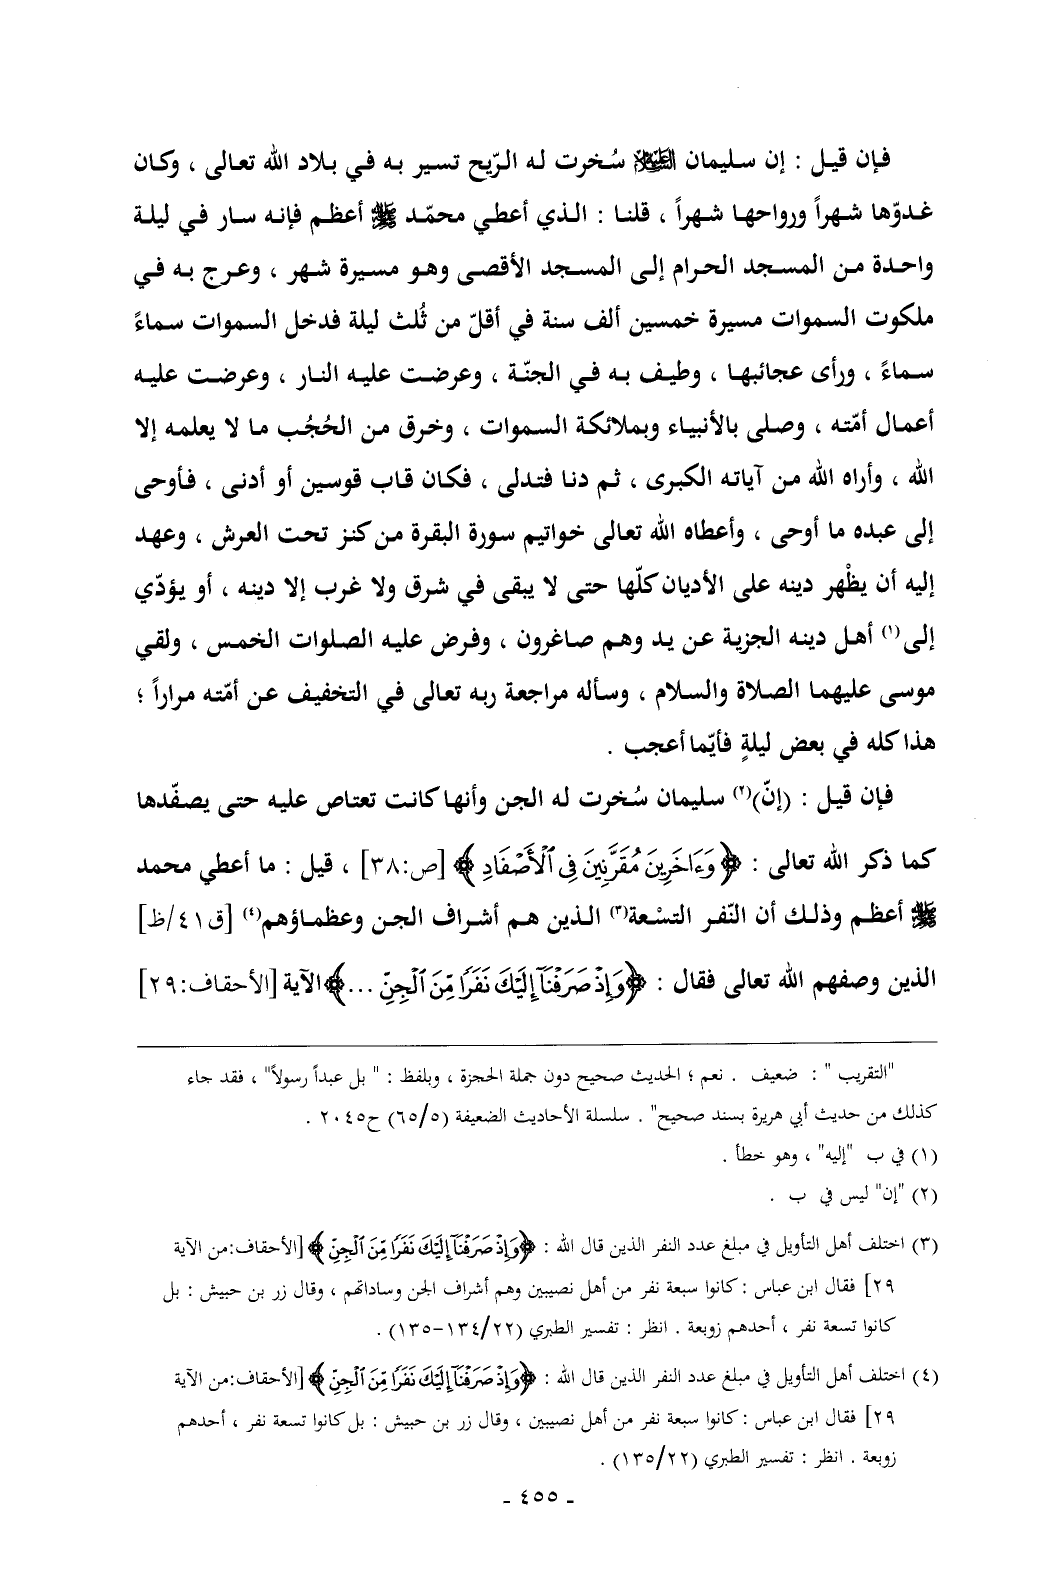 فإن قيل : إن سليمان عليه السلام سُخرت له الرّيح تسير به في بلاد الله تعالى ، وكان
غدوّها شهراً ورواحها شهراً ، قلنا : الذي أعطي محمّد ﷺ أعظم فإنه سار في ليلة
واحدة من المسجد الحرام إلى المسجد الأقصى وهو مسيرة شهر ، وعرج به في
ملكوت السموات مسيرة خمسين ألف سنة في أقلّ من ثُلث ليلة فدخل السموات سماءً
سماءً ، ورأى عجائبها ، وطيف به في الجنّة ، وعرضت عليه النار ، وعرضت عليه
أعمال أمّته ، وصلى بالأنبياء وبملائكة السموات ، وخرق من الحُجُب ما لا يعلمه إلا
الله ، وأراه الله من آياته الكبرى ، ثم دنا فتدلى ، فكان قاب قوسين أو أدنى ، فأوحى
إلى عبده ما أوحى ، وأعطاه الله تعالى خواتيم سورة البقرة من كنز تحت العرش ، وعهد
إليه أن يظْهر دينه على الأديان كلّها حتى لا يبقى في شرق ولا غرب إلا دينه ، أو يؤدّي
إلى(١) أهل دينه الجزية عن يد وهم صاغرون ، وفرض عليه الصلوات الخمس ، ولقي
موسى عليهما الصلاة والسلام ، وسأله مراجعة ربه تعالى في التخفيف عن أمّته مراراً ؛
هذا كله في بعض ليلةٍ فأيّما أعجب .
فإن قيل : (إنّ)(٢) سليمان سُخرت له الجن وأنها كانت تعتاص عليه حتى يصفّدها
كما ذكر الله تعالى : ﴿ وَءَاخَرِينَ مُقَرَّنِينَ فِي ٱلْأَصْفَادِ ﴾ [ص:٣٨] ، قيل : ما أعطي محمد
ﷺ أعظم وذلك أن النّفر التسْعة(٣) الذين هم أشراف الجن وعظماؤهم(٤) [ق٤١/ظ]
الذين وصفهم الله تعالى فقال : ﴿وَإِذْ صَرَفْنَآ إِلَيْكَ نَفَرًا مِّنَ ٱلْجِنِّ ...﴾ الآية [الأحقاف:٢٩]
"التقريب " : ضعيف . نعم ؛ الحديث صحيح دون جملة الحجزة ، وبلفظ : " بل عبداً رسولاً" ، فقد جاء
كذلك من حديث أبي هريرة بسند صحيح" . سلسلة الأحاديث الضعيفة (٦٥/٥) ح٢٠٤٥ .
(١) في ب "إليه" ، وهو خطأ .
(٢) "إن" ليس في ب .
(٣) اختلف أهل التأويل في مبلغ عدد النفر الذين قال الله : ﴿وَإِذْ صَرَفْنَآ إِلَيْكَ نَفَرًا مِّنَ ٱلْجِنِّ ﴾ [الأحقاف:من الآية
٢٩] فقال ابن عباس : كانوا سبعة نفر من أهل نصيبين وهم أشراف الجن وساداتهم ، وقال زر بن حبيش : بل
كانوا تسعة نفر ، أحدهم زوبعة . انظر : تفسير الطبري (١٣٤/٢٢-١٣٥) .
(٤) اختلف أهل التأويل في مبلغ عدد النفر الذين قال الله : ﴿وَإِذْ صَرَفْنَآ إِلَيْكَ نَفَرًا مِّنَ ٱلْجِنِّ ﴾ [الأحقاف:من الآية
٢٩] فقال ابن عباس : كانوا سبعة نفر من أهل نصيبين ، وقال زر بن حبيش : بل كانوا تسعة نفر ، أحدهم
زوبعة . انظر : تفسير الطبري (١٣٥/٢٢) .
- ٤٥٥ -